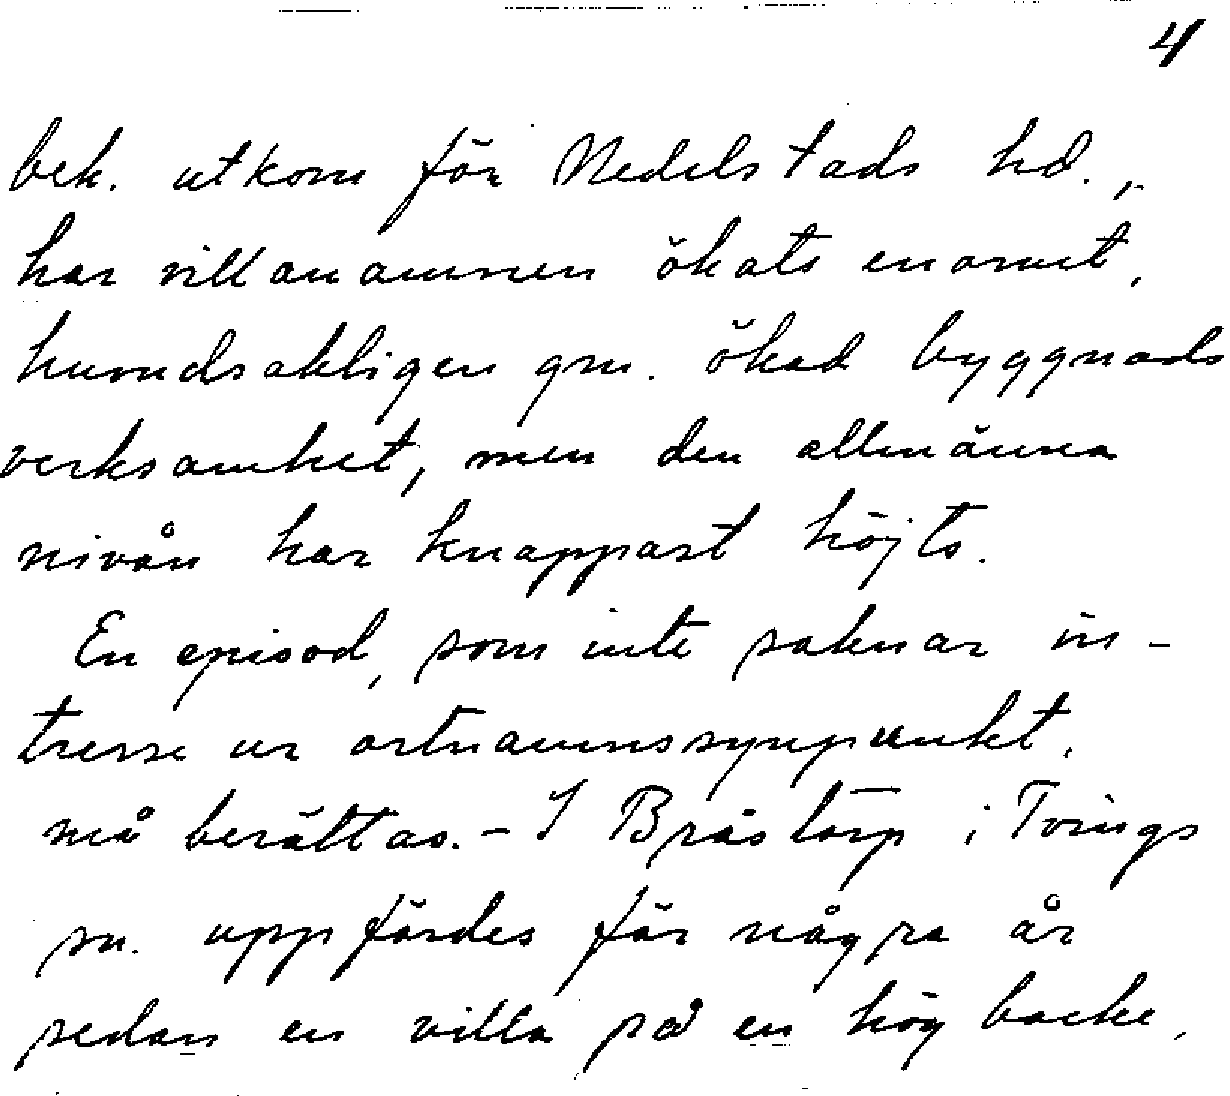 4
bek. utkom för Medelstads hd.,
har villanamnen ökats enormt,
huvudsakligen gm. ökad byggnads
verksamhet, men den allmänna
nivån har knappast höjts.
En episod, som inte saknar in-
tresse ur ortnamnssynpunkt,
må berättas. - I Bråstorp i Tvings
sn. uppfördes för några år
sedan en villa på en hög backe,